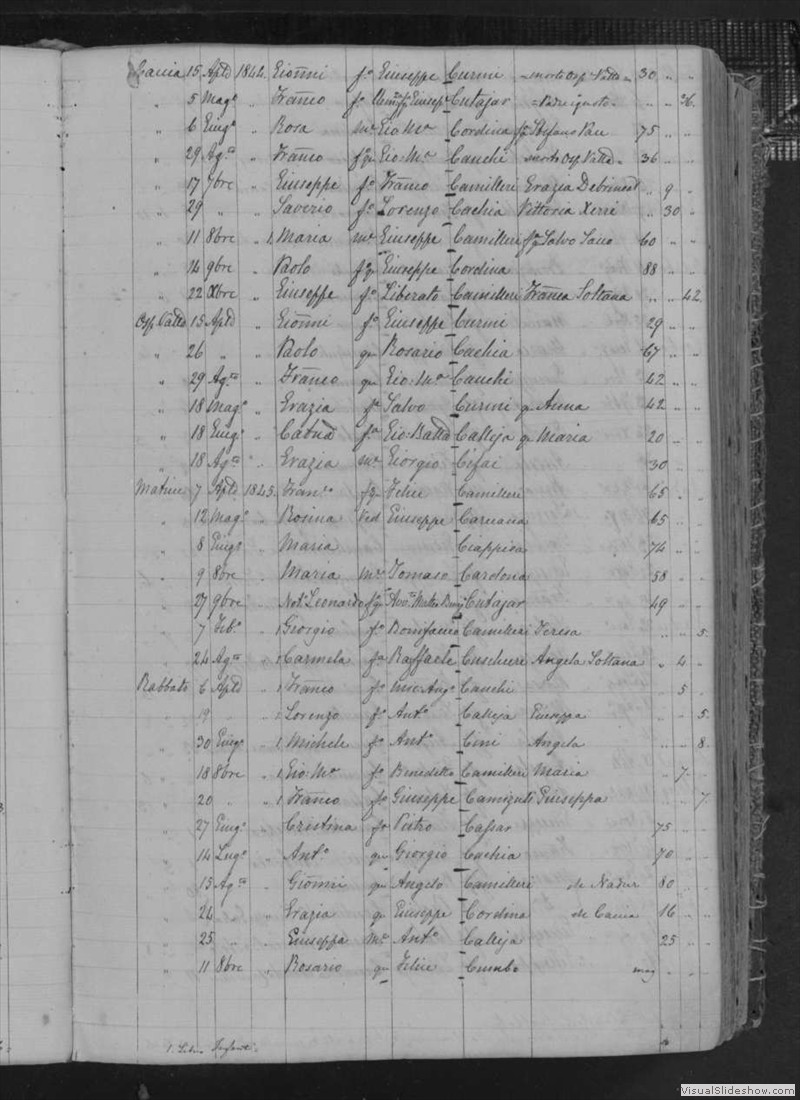 Caccia 15 Aple 1844. Gionni fo Giuseppe Curmi = morto Osp. Vatta = 30 " "
" 5 Mago " Franco fo Giusep Cutajar " " 26.
" 6 Giugo " Rosa me Gio Ma Cordina fq Stefano 75 " "
" 29 Agto " Franco fqu Gio: Ma Cauchi morto Osp. Vatta = 36 " "
" 17 7bre " Giuseppe fo Franco Camilleri Grazia " 9 "
" 29 " " Saverio fo Lorenzo Cachia Vittoria Xerri " 30 "
" 11 8bre " Maria me Giuseppe Camilleri fq Salvo 60 " "
" 14 9bre " Paolo fqu Giuseppe Cordina 88 " "
" 22 Xbre " Giuseppe fo Liberato Camilleri Franca Soltana " " 42
Osp. Vatta 15 Aple " Gionni fo Giuseppe Curmi 29 " "
" 26 " " Paolo qu Rosario Cachia 67 " "
" 29 Agto " Franco qu Gio: Ma Cauchi 42 " "
" 18 Mago " Grazia fa Salvo Curmi q Anna 42 " "
" 18 Giugo " Catna fa Gio: Batta Calleja q Maria 20 " "
" 18 Agto " Grazia me Giorgio 30 " "
Matrice 7 Aple 1845. Frano fqu Felice Camilleri 65 " "
" 12 Mago " Rosina Ved Giuseppe Caruana 65 " "
" 8 Giugo " Maria 74 " "
" 9 8bre " Maria me Tomaso Cardona 58 " "
" 27 9bre " Notr Leonardo fqu Cutajar 49 " "
" 7 Feb.o " Giorgio fo Bonifacio Camilleri Teresa " " 5.
" 24 Agto " Carmela fa Raffaele Buschieri Angela Soltana " 4 "
Rabbato 6 Aple " Franco fo Cauchi " 5 "
" 19 " " Lorenzo fo Anto Calleja Giuseppa " " 5.
" 30 Giugo " Michele fo Anto Cini Angela " " 8.
" 18 8bre " Gio: Ma fo Benedetto Camilleri Maria " 7. "
" 20 " " Franco fo Giuseppe Camizuli Giuseppa " " 7
" 27 Giugo " Cristina fa Pietro Cassar 75 " "
" 14 Lugo " Anto qu Giorgio Cachia 70 " "
" 15 Agto " Gionni qu Angelo Camilleri de Nadur 80 " "
" 24 " Grazia qu Giuseppe Cordina de Caccia 16 " "
" 25 " " Giuseppa me Anto Calleja 25 " "
" 11 8bre " Rosario qu Felice Cumbo mag " "
VisualSlideshow.com